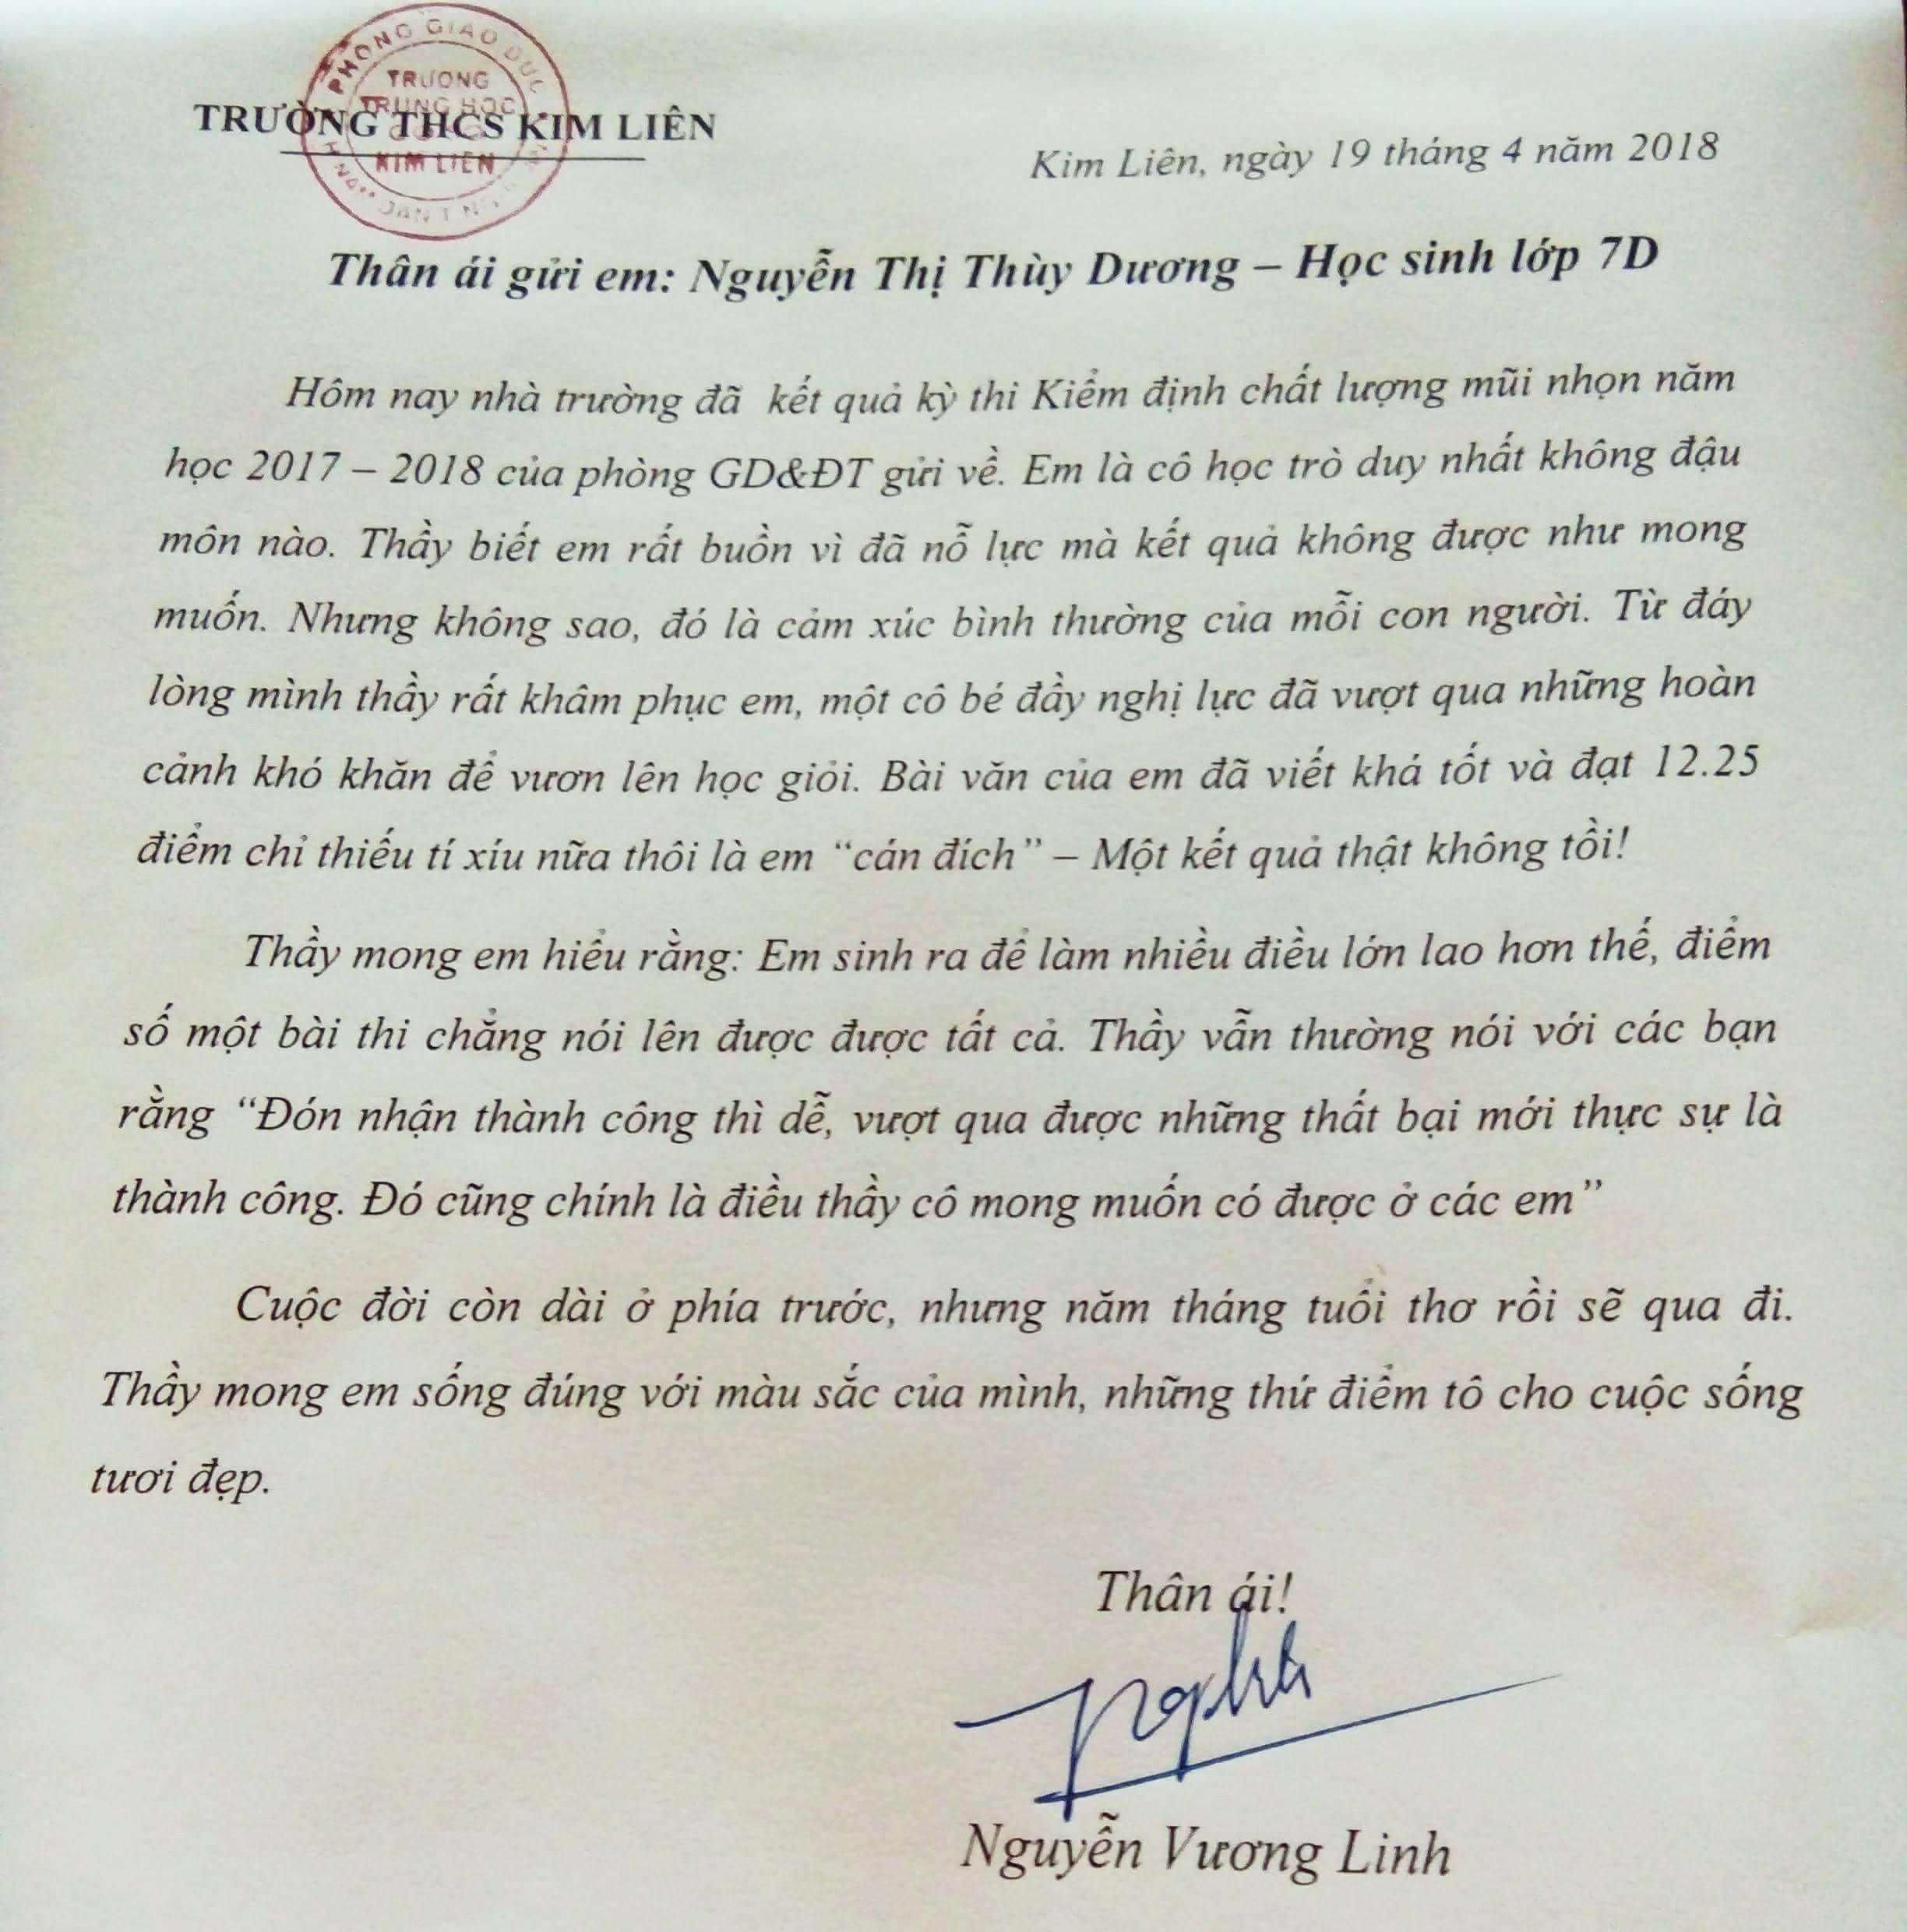 PHÒNG GIÁO DỤC
TRƯỜNG
TRUNG HỌC
KIM LIÊN
TRƯỜNG THCS KIM LIÊN
Kim Liên, ngày 19 tháng 4 năm 2018
Thân ái gửi em: Nguyễn Thị Thùy Dương – Học sinh lớp 7D
Hôm nay nhà trường đã kết quả kỳ thi Kiểm định chất lượng mũi nhọn năm
học 2017 – 2018 của phòng GD&ĐT gửi về. Em là cô học trò duy nhất không đậu
môn nào. Thầy biết em rất buồn vì đã nỗ lực mà kết quả không được như mong
muốn. Nhưng không sao, đó là cảm xúc bình thường của mỗi con người. Từ đáy
lòng mình thầy rất khâm phục em, một cô bé đầy nghị lực đã vượt qua những hoàn
cảnh khó khăn để vươn lên học giỏi. Bài văn của em đã viết khá tốt và đạt 12.25
điểm chỉ thiếu tí xíu nữa thôi là em “cán đích” – Một kết quả thật không tồi!
Thầy mong em hiểu rằng: Em sinh ra để làm nhiều điều lớn lao hơn thế, điểm
số một bài thi chẳng nói lên được được tất cả. Thầy vẫn thường nói với các bạn
rằng “Đón nhận thành công thì dễ, vượt qua được những thất bại mới thực sự là
thành công. Đó cũng chính là điều thầy cô mong muốn có được ở các em”
Cuộc đời còn dài ở phía trước, nhưng năm tháng tuổi thơ rồi sẽ qua đi.
Thầy mong em sống đúng với màu sắc của mình, những thứ điểm tô cho cuộc sống
tươi đẹp.
Thân ái!
Nguyễn Vương Linh